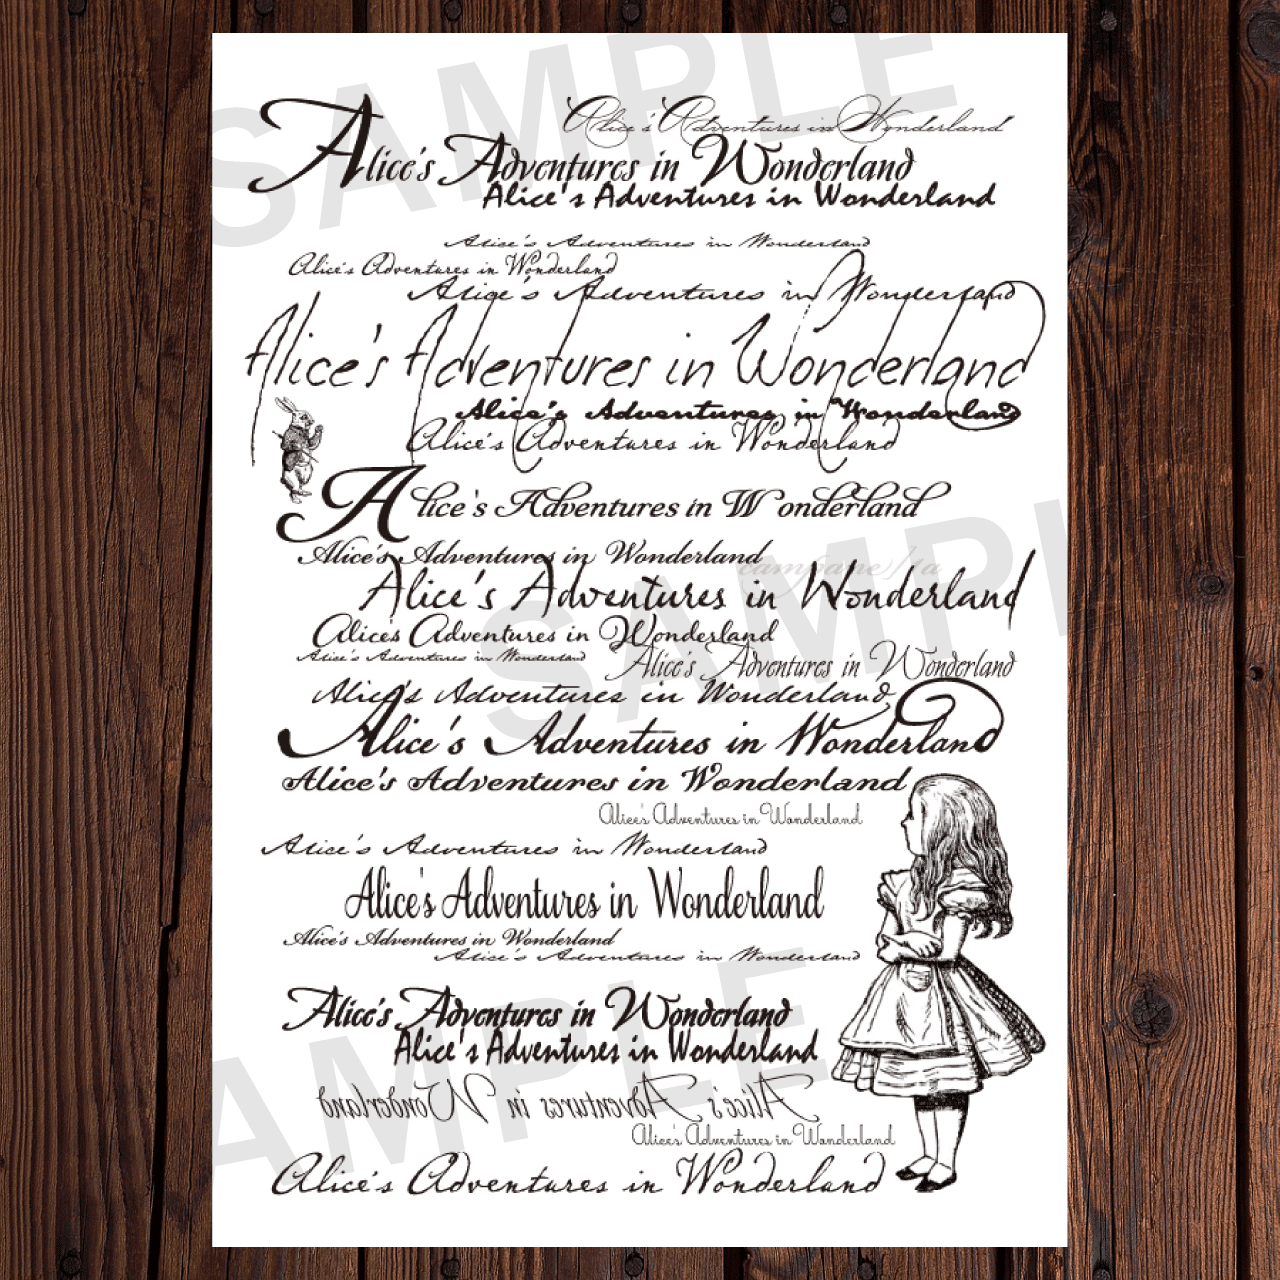 SAMPLE
Alice's Adventures in Wonderland
Alice's Adventures in Wonderland
Alice's Adventures in Wonderland
Alice's Adventures in Wonderland
Alice's Adventures in Wonderland
Alice's Adventures in Wonderland
Alice's Adventures in Wonderland
Alice's Adventures in Wonderland
Alice's Adventures in Wonderland
Alice's Adventures in Wonderland
Alice's Adventures in Wonderland
Alice's Adventures in Wonderland
SAMPL
Alice's Adventures in Wonderland
Alice's Adventures in Wonderland
Alice's Adventures in Wonderland
Alice's Adventures in Wonderland
Alice's Adventures in Wonderland
Alice's Adventures in Wonderland
Alice's Adventures in Wonderland
Alice's Adventures in Wonderland
Alice's Adventures in Wonderland
Alice's Adventures in Wonderland
Alice's Adventures in Wonderland
Alice's Adventures in Wonderland
Alice's Adventures in Wonderland
AMPLE
Alice's Adventures in Wonderland
Alice's Adventures in Wonderland
Alice's Adventures in Wonderland